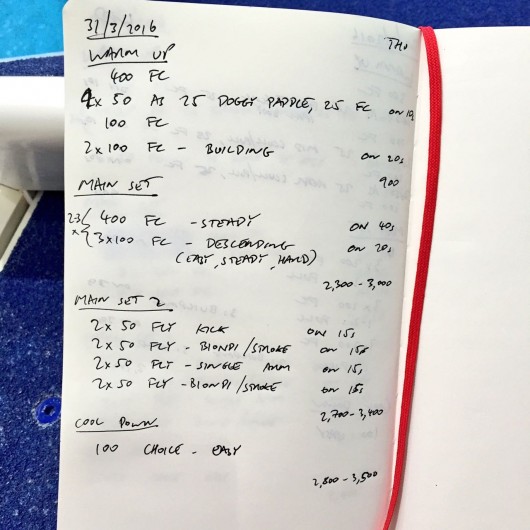 31/3/2016 THU
WARM UP
400 FC
4x 50 AS 25 DOGGY PADDLE, 25 FC ON 10s
100 FC
2x100 FC - BUILDING ON 20s
900
MAIN SET
2-3 x { 400 FC - STEADY ON 40s
3x100 FC - DESCENDING ON 20s
(EASY, STEADY, HARD)
2,300 - 3,000
MAIN SET 2
2x 50 FLY KICK ON 15s
2x 50 FLY - BIONDI/STROKE ON 15s
2x 50 FLY - SINGLE ARM ON 15s
2x 50 FLY - BIONDI/STROKE ON 15s
2,700 - 3,400
COOL DOWN
100 CHOICE - EASY
2,800 - 3,500